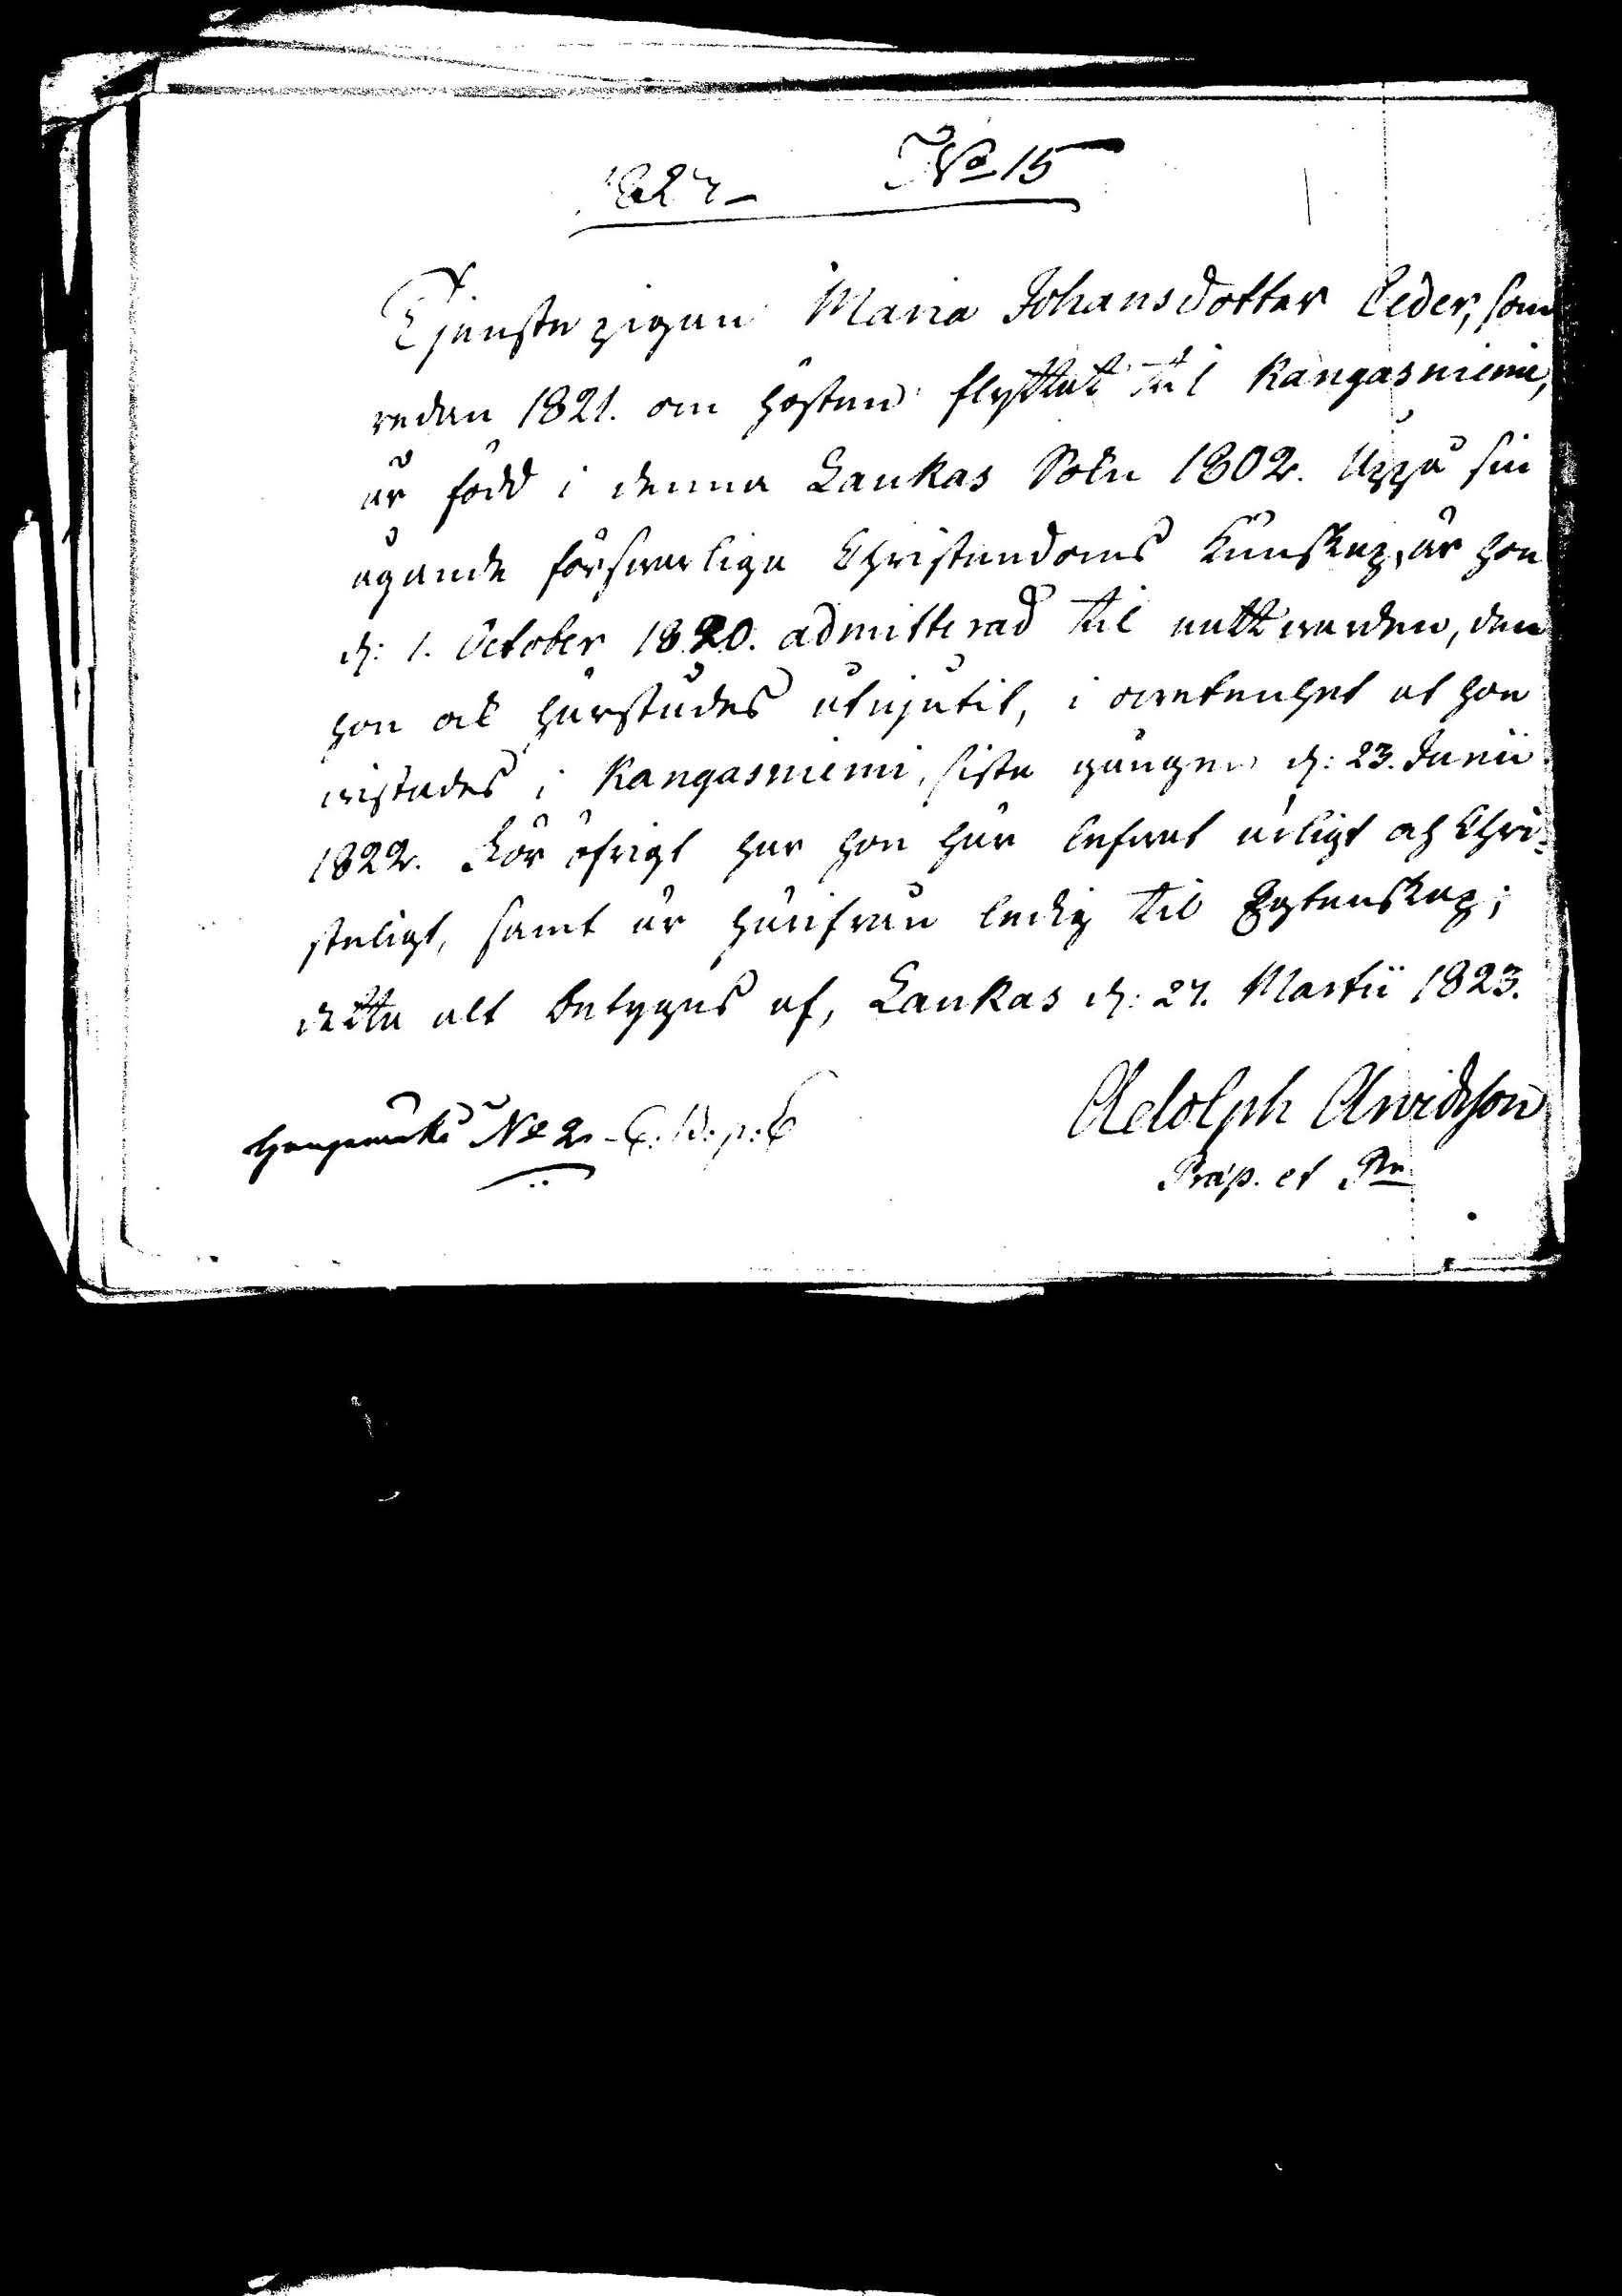 1823 N:o 15
Tjenste pigan Maria Johansdotter Ceder, som
redan 1821. om hösten flyttat til Kangasniemi,
är född i denna Laukas Sokn 1802. Uppå sin
ägande försvarliga Christendoms Kunskap, är hon
d: 1. October 1820. admitterad til nattwarden, den
hon ock härstädes utnjutit, i owetenhet at hon
wistades i Kangasniemi, sista gången d: 23. Junii
1822. För öfrigt har hon här lefwat ärligt och Chri-
steligt, samt är härifrån ledig til Egtenskap;
detta alt betygas af, Laukas d: 27. Martii 1823.
Adolph Arwidsson
Präp. et P:r
N:o 2